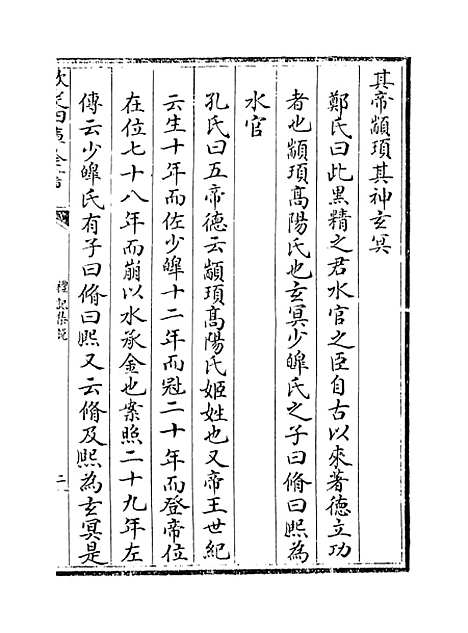 其帝顓頊其神玄冥
鄭氏曰此黑精之君水官之臣自古以來著德立功
者也顓頊髙陽氏也玄冥少皥氏之子曰脩曰熙為
水官
孔氏曰五帝德云顓頊髙陽氏姬姓也又帝王世紀
云生十年而佐少皥十二年而冠二十年而登帝位
在位七十八年而崩以水承金也案昭二十九年左
傳云少皥氏有子曰脩曰熙又云脩及熙為玄冥是
欽定四庫全書
禮記集說
二